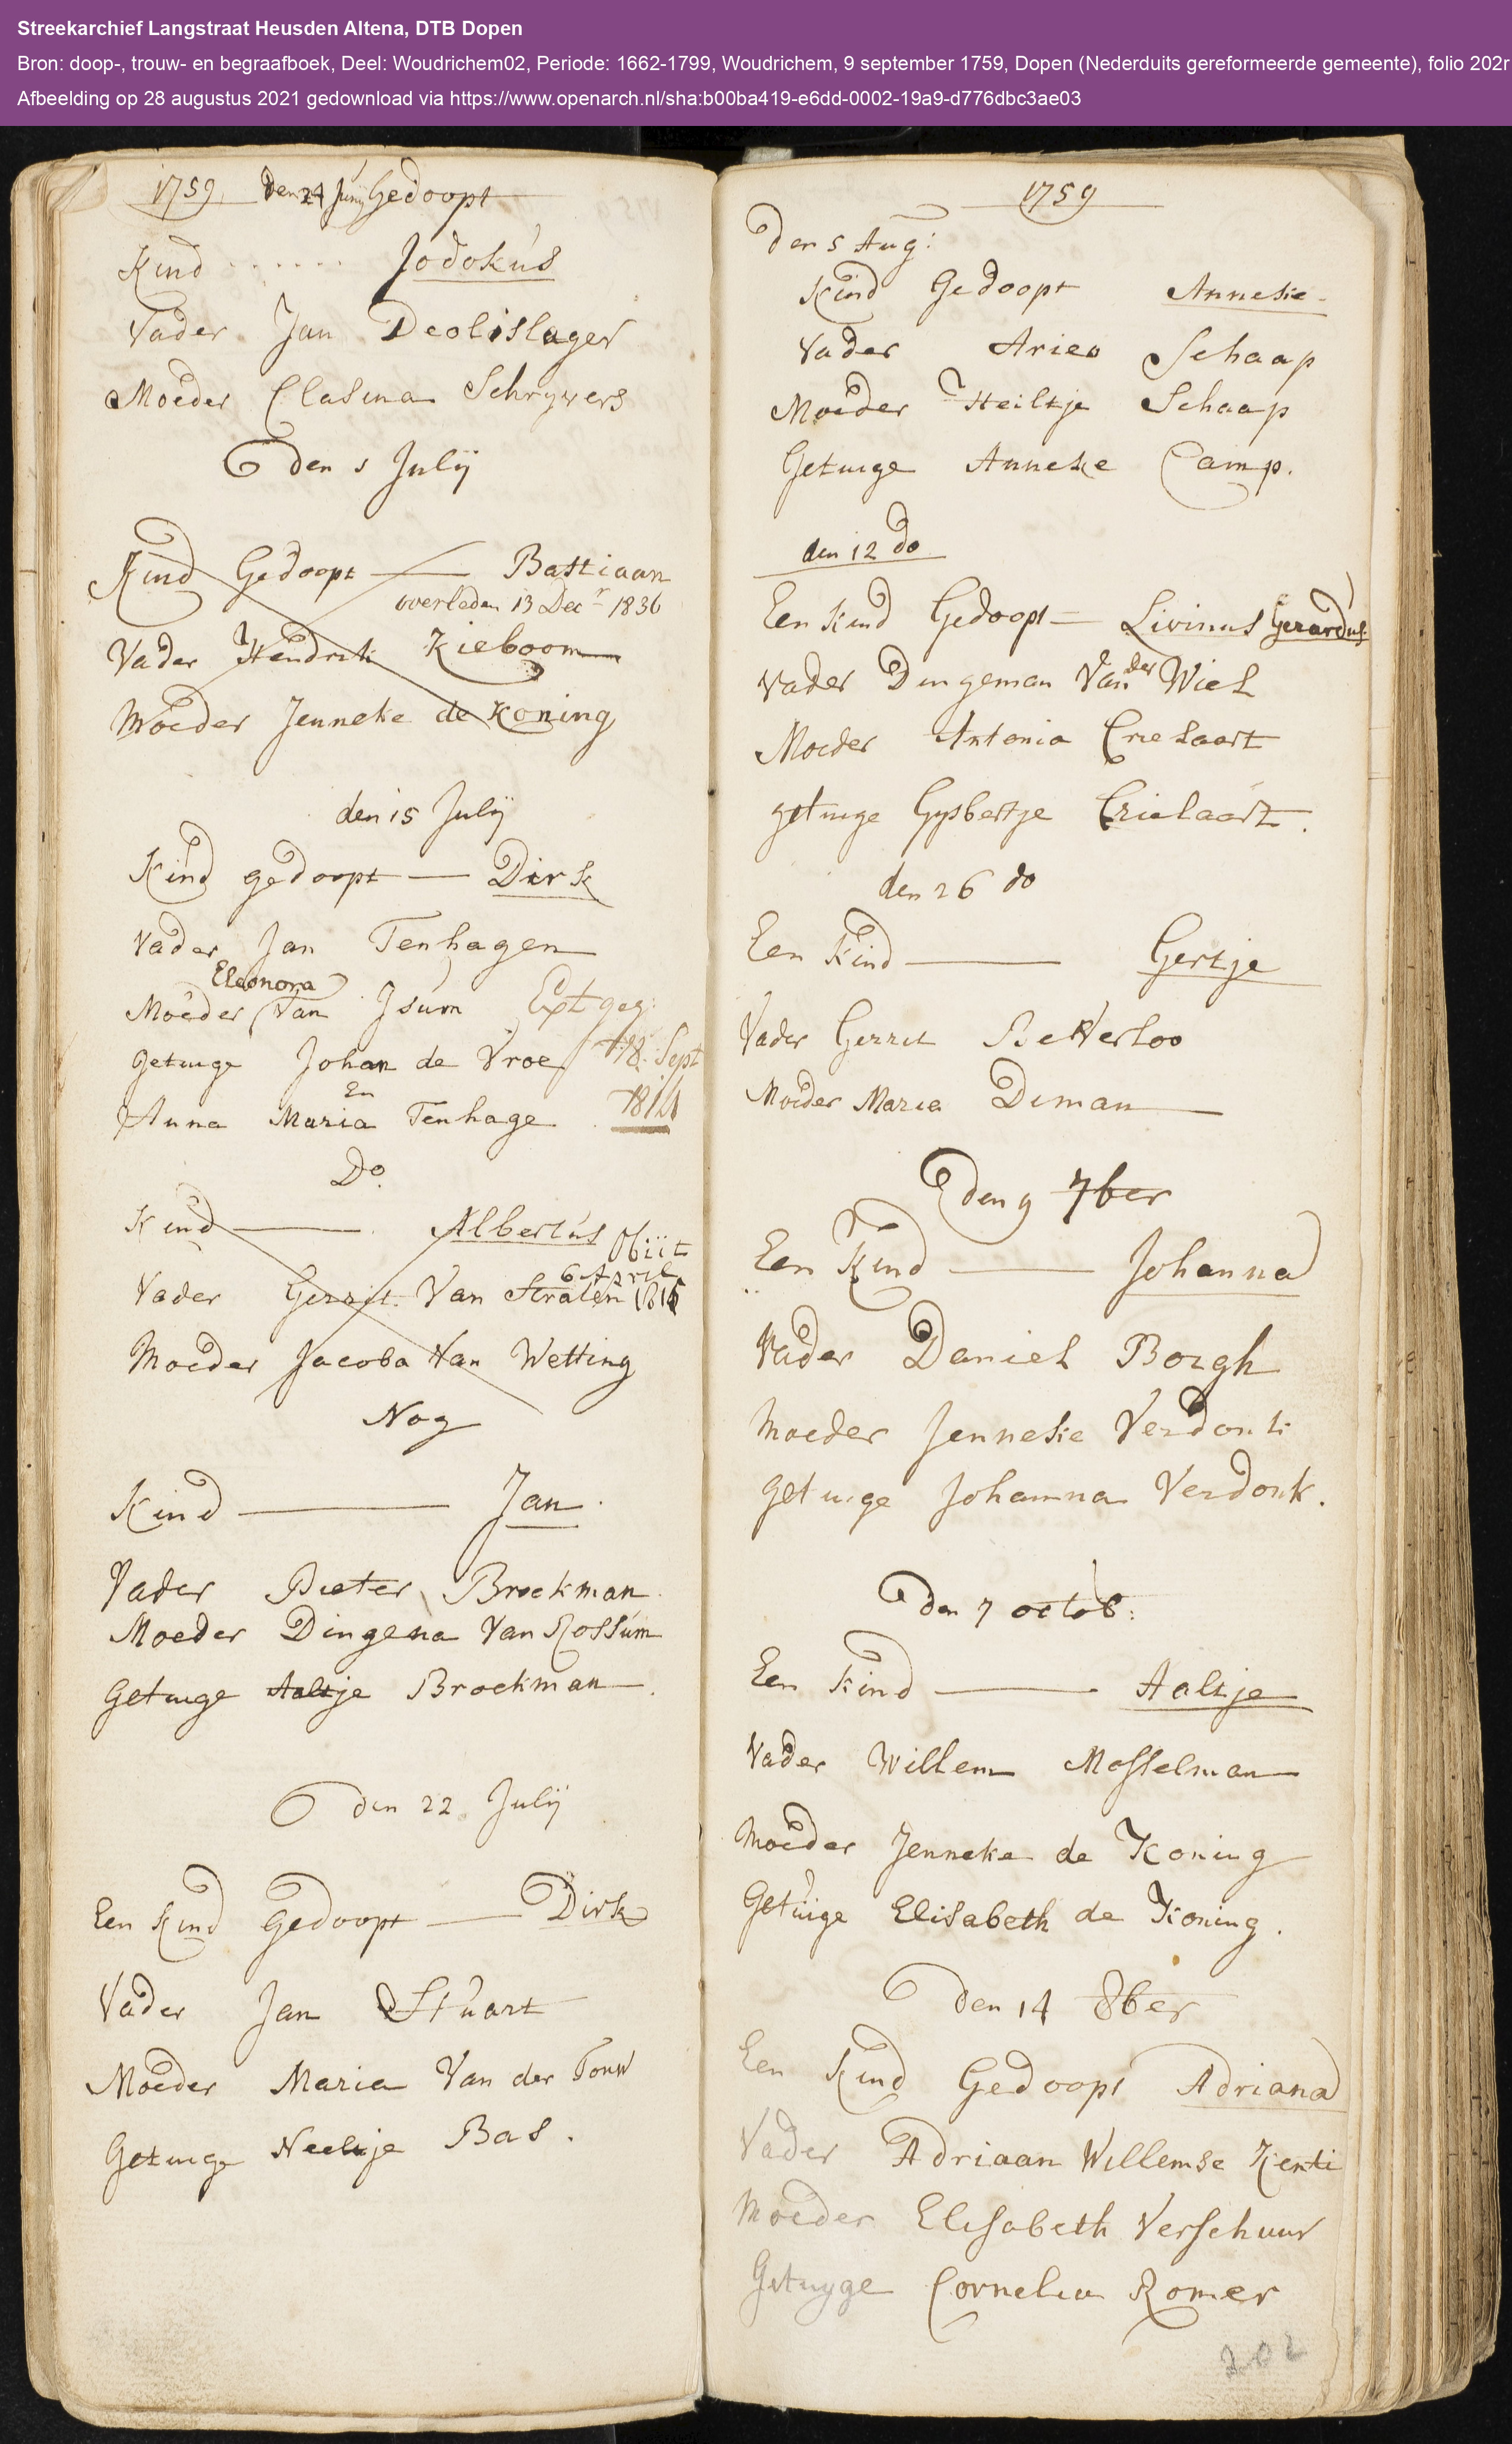 Streekarchief Langstraat Heusden Altena, DTB Dopen
Bron: doop-, trouw- en begraafboek, Deel: Woudrichem02, Periode: 1662-1799, Woudrichem, 9 september 1759, Dopen (Nederduits gereformeerde gemeente), folio 202r
Afbeelding op 28 augustus 2021 gedownload via https://www.openarch.nl/sha:b00ba419-e6dd-0002-19a9-d776dbc3ae03
1759 Den 24 Junij Gedoopt
Kind ...... Jodokus
Vader Jan Deolislager
Moeder Clasina Schryvers
den 1 Julij
Kind Gedoopt — Bastiaan
overleden 13 Decr 1836
Vader Hendrik Kieboom
Moeder Jenneke de Koning
den 15 Julij
Kind gedoopt — Dirk
Vader Jan Tenhagen
Eleonora
Moeder Van Isum Ext geg:
Getuige Johan de Vroe 18 Sept
En 1814
Anna Maria Tenhage
Do
Kind — Albertus Obiit
6 April
Vader Gerrit Van Stralen 1815
Moeder Jacoba Van Wetting
Nog
Kind — Jan.
Vader Pieter Broekman
Moeder Dingena Van Rossum
Getuige Aaltje Broekman
den 22 Julij
Een Kind Gedoopt — Dirk
Vader Jan Stuart
Moeder Maria Van der Touw
Getuige Neeltje Bas.
1759
Den 5 Aug:
Kind Gedoopt Anneke
Vader Arien Schaap
Moeder Heiltje Schaap
Getuige Anneke Camp.
den 12 do
Een Kind Gedoopt — Livinus Gerardus
Vader Dingeman Van der Wiel
Moeder Antonia Crielaart
getuige Gysbertje Crielaart.
den 26 do
Een Kind — Gertje
Vader Gerrit Beverloo
Moeder Maria Diman
den 9 7ber
Een Kind — Johanna
Vader Daniel Borgh
Moeder Jenneke Verdonk
getuige Johanna Verdonk.
den 7 octob:
Een Kind — Aaltje
Vader Willem Mosselman
Moeder Jenneke de Koning
Getuige Elisabeth de Koning.
den 14 8ber
Een Kind Gedoopt Adriana
Vader Adriaan Willemse
Moeder Elisabeth Verschuur
Getuyge Cornelia Romer
202